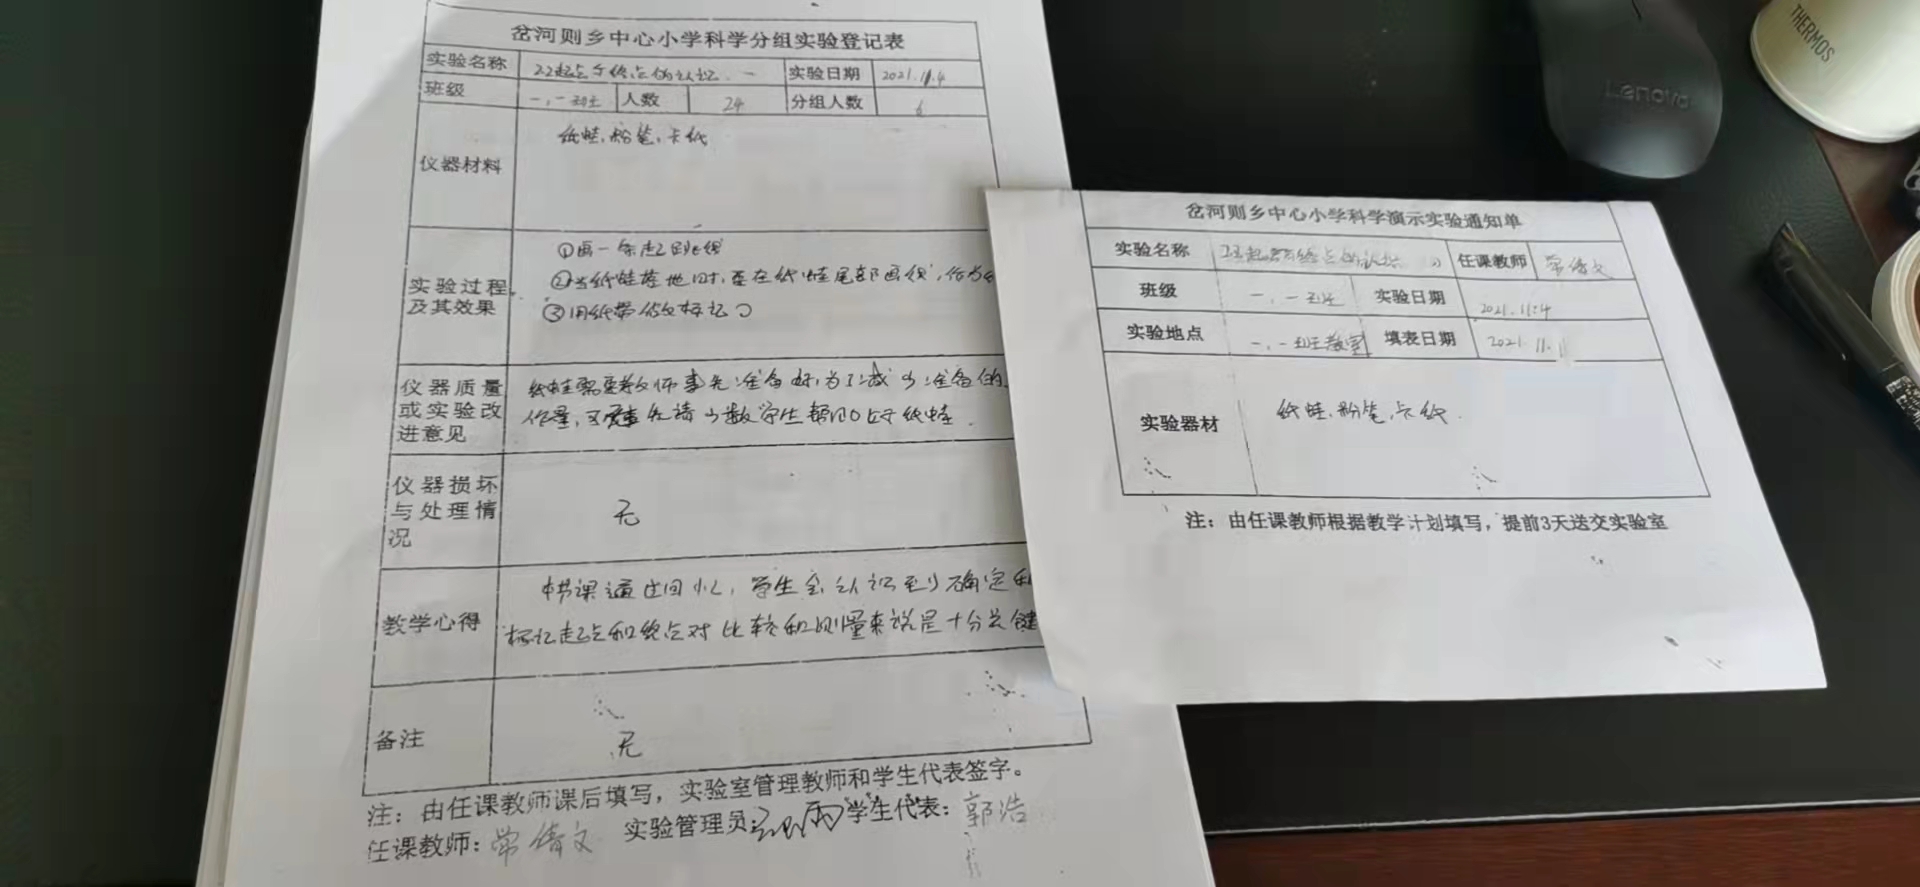 岔河则乡中心小学科学分组实验登记表
实验名称 2.2起点与终点的认识 实验日期 2021.11.4
班级 一.一班 人数 24 分组人数 6
仪器材料 纸蛙.粉笔.卡纸
实验过程及其效果
①画一条起跳线
②当纸蛙落地时,要在纸蛙尾部画线,作为
③用纸带做标记
仪器质量或实验改进意见
纸蛙需要教师事先准备好,为了减少准备的
作量,可先请少数学生帮忙 纸蛙.
仪器损坏与处理情况 无
教学心得
本节课通过回忆,学生会认识到确定和
标记起点和终点对比较和测量来说是十分关键
备注 无
注:由任课教师课后填写,实验室管理教师和学生代表签字。
任课教师:常倩文 实验管理员: 学生代表:郭浩
岔河则乡中心小学科学演示实验通知单
实验名称 起点 终点的认识 任课教师 常倩文
班级 一.一班 实验日期 2021.11.4
实验地点 一.一班教室 填表日期 2021.11.1
实验器材 纸蛙.粉笔.卡纸.
注:由任课教师根据教学计划填写,提前3天送交实验室
Lenovo
THERMOS